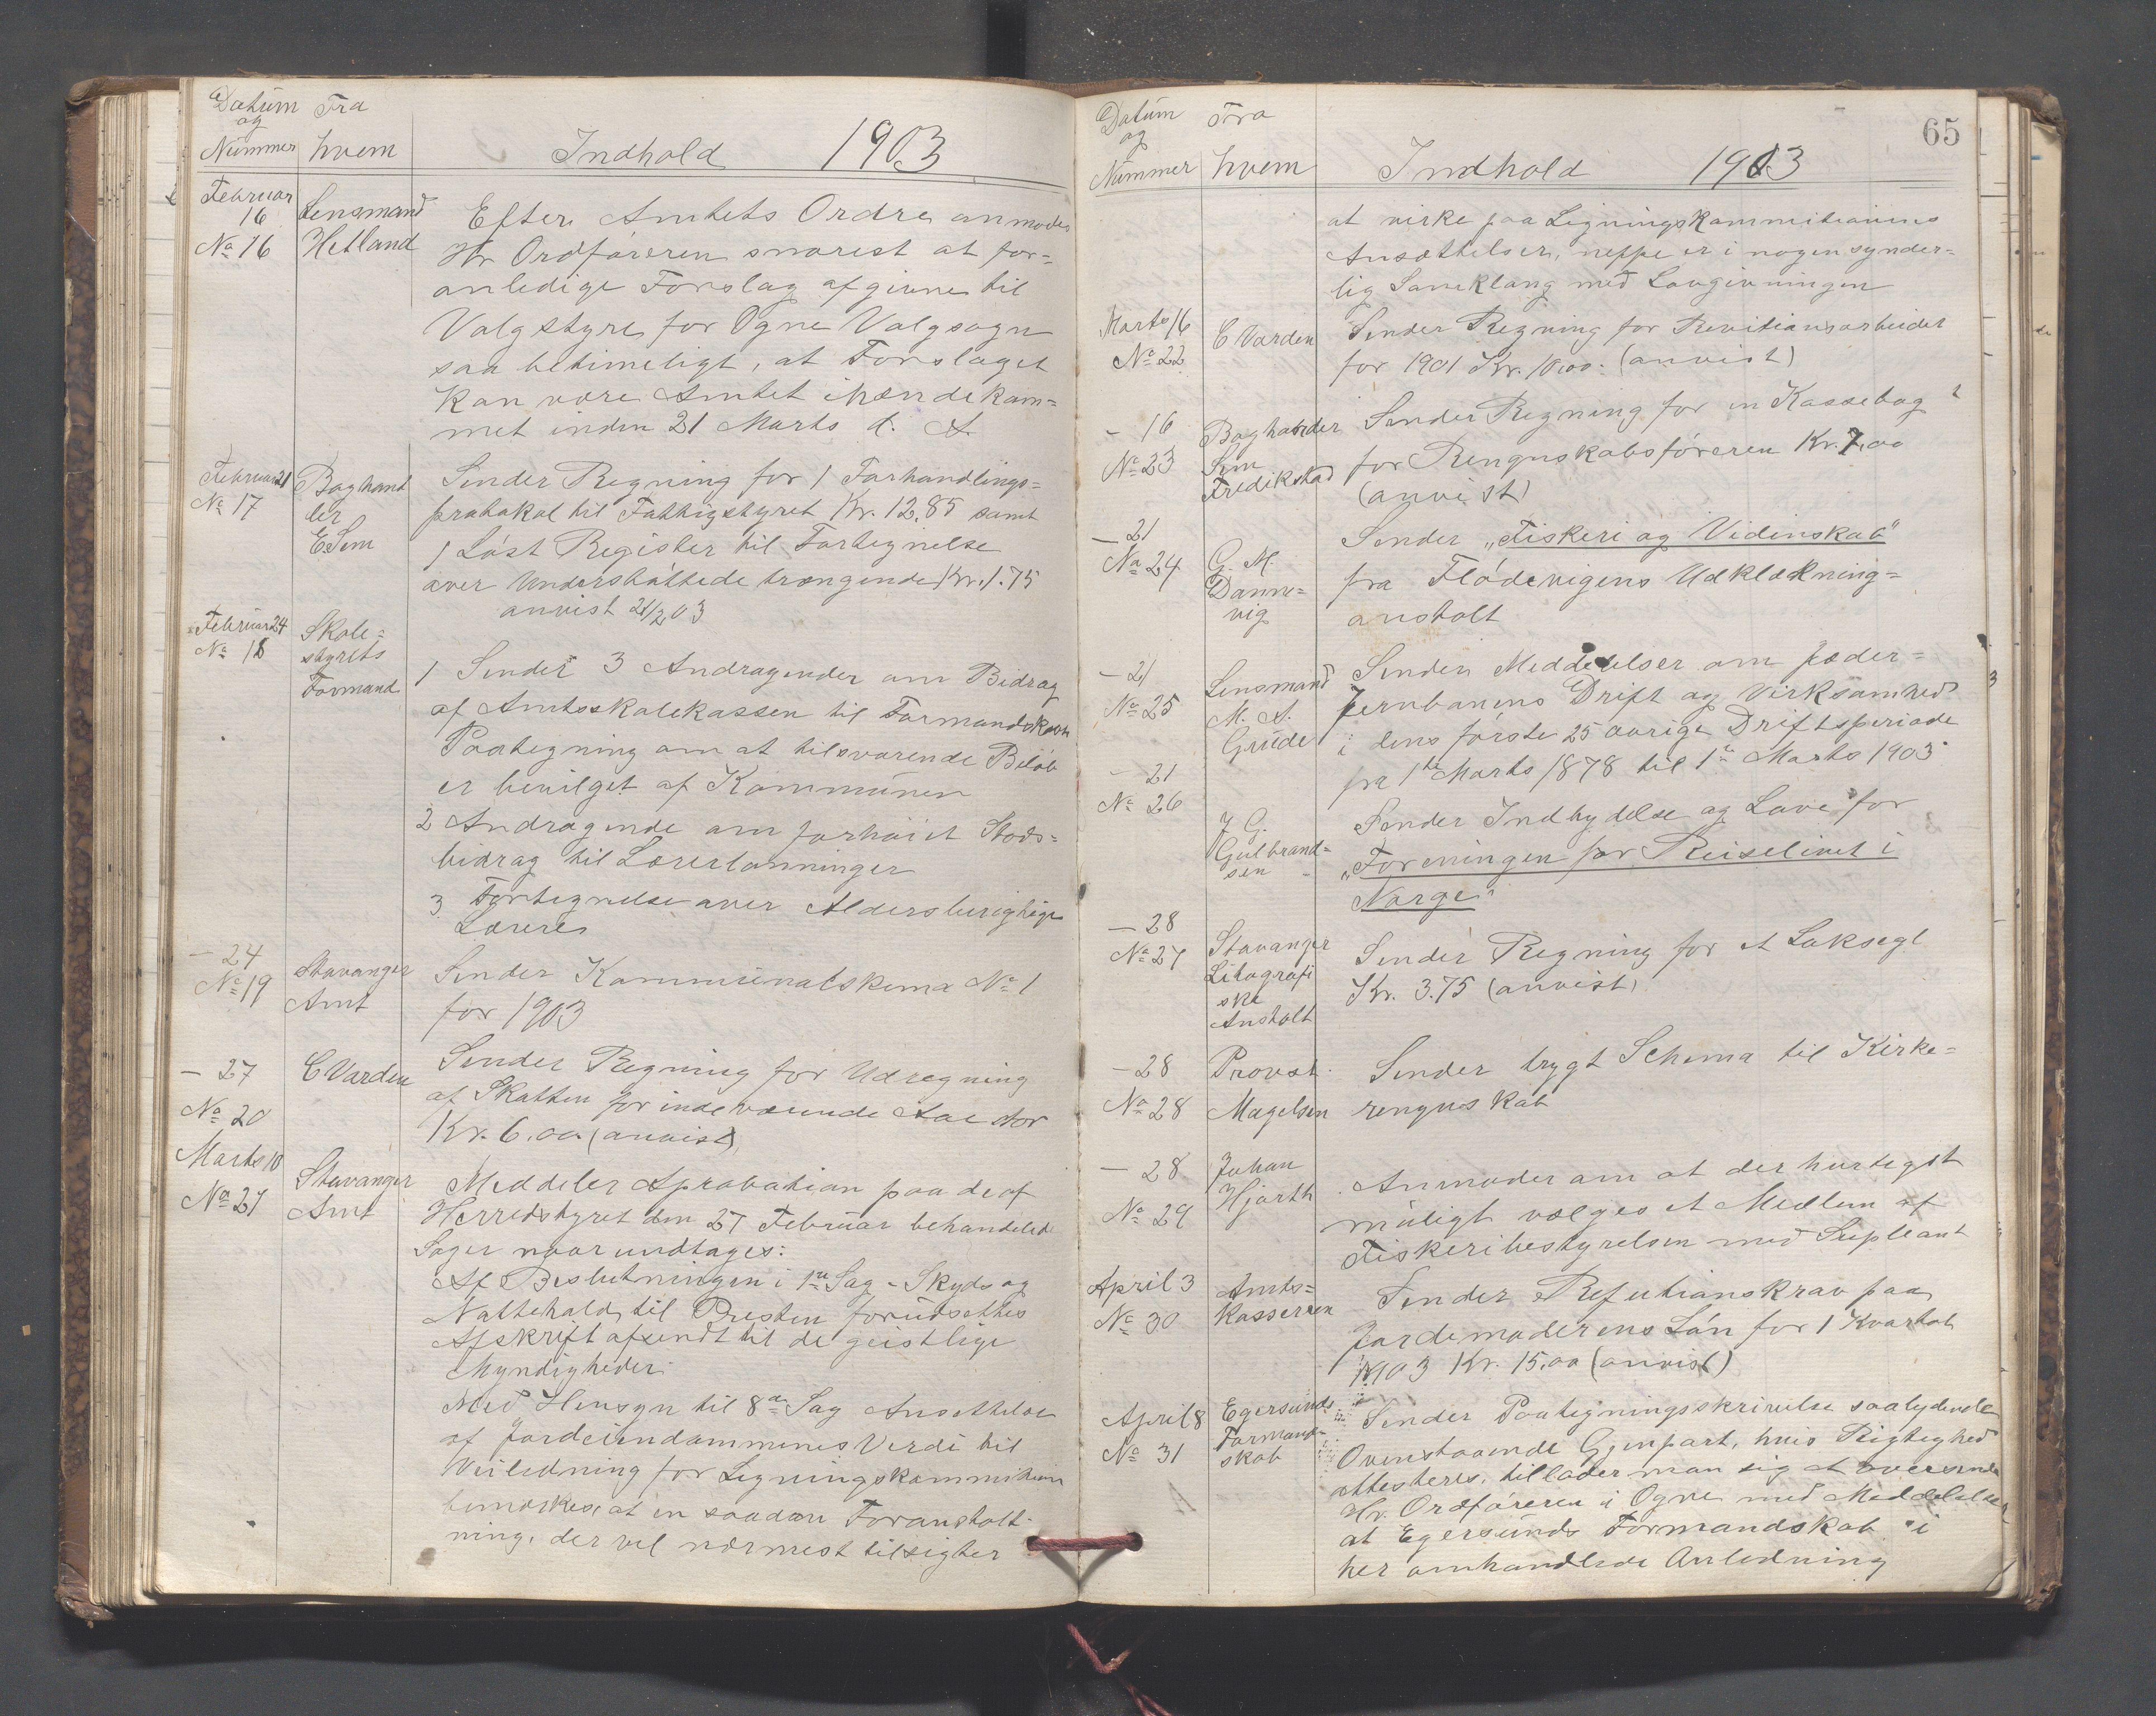 Datum Fra
og
Nummer hvem Indhold 1903
Februar 16 Lensmand Efter Amtets Ordre anmodes
No 16 Hetland Hr Ordføreren snarest at for=
anledige Forslag afgivne til
Valgstyre for Ogne Valgsogn
saa betimeligt, at Forslaget
kan være Amtet ihændekom=
met inden 21 Marts d. A.
Februar 21 Boghand Sender Regning for 1 Forhandlings=
No 17 ler protokol til Fattigstyret Kr. 12,85 samt
E. Sem 1 Løst Register til Fortegnelse
over Understøttede trængende Kr. 1.75
anvist 21/2 03
Februar 24 Skole=
No 18 styrets
Formand 1 Sender 3 Andragender om Bidrag
af Amtsskolekassen til Formandskabets
Paategning om at tilsvarende Beløb
er bevilget af Kommunen
2 Andragende om forhøiet Stods=
bidrag til Lærerlønninger
3 Fortegnelse over Aldersberigtige
Lærere
— 24 Stavanger Sender Kommunalskema No 1
No 19 Amt for 1903
— 27 C Varden Sender Regning for Udregning
No 20 af Skatten for indeværende Aar stor
Kr. 6.00 (anvist)
Marts 10 Stavanger Meddeler Aprobation paa de af
No 21 Amt Herredstyret den 27 Februar behandlede
Sager naar undtages:
Af Beslutningen i 1te Sag - Skyds og
Nattehold til Presten forudsættes
Afskrift afsendt til de geistlige
Myndigheder.
Med Hensyn til 8de Sag Ansettelse
af Jordeiendommenes Verdi til
Veiledning for Ligningskommitionen
bemærkes, at en saadan Foranstalt=
ning, der vel nærmest tilsigter
65
Datum Fra
og
Nummer hvem Indhold 1903
at virke paa Ligningskommitionens
Ansættelser, neppe er i nogen synder=
lig Samklang med Lovgivningen
Marts 16 C Varden Sender Regning for Revitionsarbeider
No 22 for 1901 Kr. 10.00. (anvist)
— 16 Boghander Sender Regning for en Kassebog
No 23 Sem for Rengnskabsføreren Kr. 7,00
Fredikstad (anvist)
— 21 Sender „Fiskeri og Videnskab"
No 24 G. M. fra Flødevigens Udklækning=
Danne= anstalt
vig
— 21 Lensmand Sender Meddelelser om Jæder=
No 25 M. A. Jernbanens Drift og Virksomhed
Grude i dens første 25 aarige Driftsperiode
fra 1te Marts 1878 til 1te Marts 1903
— 21
No 26 J G. Sender Indbydelse og Love for
Gulbrand= „Foreningen for Reiselivet i
sen Norge"
— 28
No 27 Stavanger Sender Regning for et Laksegl
Litografi Kr. 3.75 (anvist)
ske
Anstalt
— 28 Provst Sender trygt Schema til Kirke=
No 28 Magelsen rengnskab
— 28 Johan Anmoder om at der hurtigst
No 29 Hjorth muligt vælges et Medlem af
Fiskeribestyrelsen med Supleant
April 3 Amts= Sender Refutionskrav paa
No 30 kasserren Jordemoderens Løn for 1 Kvartal
1903 Kr. 15.00 (anvist)
April 8 Egersunds Sender Paategningsskrivelse saalydende
No 31 Formand= Ovenstaaende Gjenpart, hvis Rigtighed
skab attesteres, tillader man sig at oversende
Hr. Ordføreren i Ogne med Meddelelse
at Egersunds Formandskab i
her omhandlede Anledning